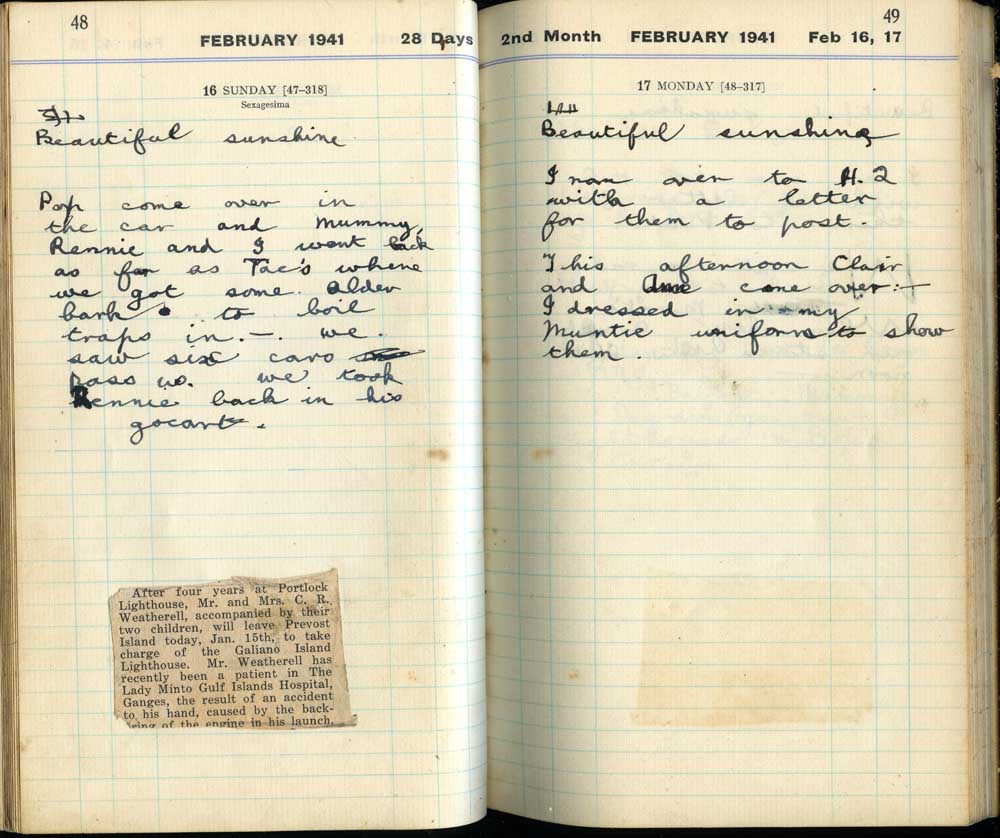 48
FEBRUARY 1941 28 Days
16 SUNDAY [47–318]
Sexagesima
Beautiful sunshine
Pop come over in
the car and Mummy,
Rennie and I went back
as far as Tac's where
we got some alder
bark to boil
traps in. —. we
saw six cars
pass us. we took
Rennie back in his
gocart.
After four years at Portlock
Lighthouse, Mr. and Mrs. C. R.
Weatherell, accompanied by their
two children, will leave Prevost
Island today, Jan. 15th, to take
charge of the Galiano Island
Lighthouse. Mr. Weatherell has
recently been a patient in The
Lady Minto Gulf Islands Hospital,
Ganges, the result of an accident
to his hand, caused by the back-
firing of the engine in his launch.
49
2nd Month FEBRUARY 1941 Feb 16, 17
17 MONDAY [48–317]
Beautiful sunshine
I ran over to H.Q
with a letter
for them to post.
This afternoon Clair
and come over:—
I dressed in my
Muntie uniform to show
them.